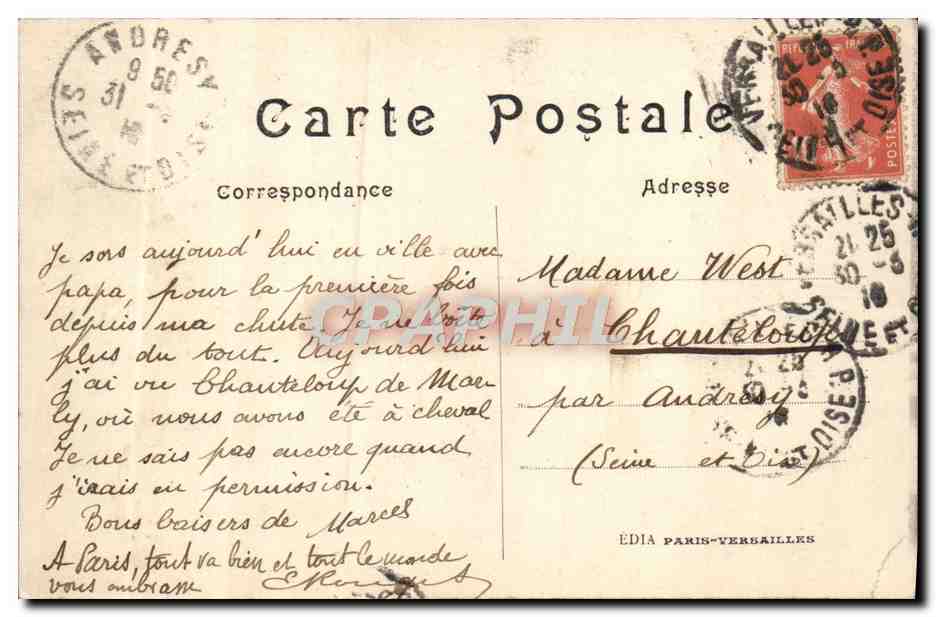 ANDRESY
9 50
31
SEINE ET OISE
VERSAILLES
21 25
30
16
SEINE ET OISE
REPUBLIQUE FRANÇAISE
POSTES
Carte Postale
Correspondance
Adresse
Je sors aujourd'hui en ville avec
papa, pour la première fois
depuis ma chute. Je ne boîte
plus du tout. Aujourd'hui
j'ai vu Chanteloup de Mar-
ly, où nous avons été à cheval
Je ne sais pas encore quand
j'irais en permission.
Bons baisers de Marcel
A Paris, tout va bien et tout le monde
vous embrasse
Madame West
à Chanteloup
par Andrésy
(Seine et Oise)
VERSAILLES
21 25
30
16
SEINE ET
OISE
EDIA PARIS-VERSAILLES
CPAPHIL